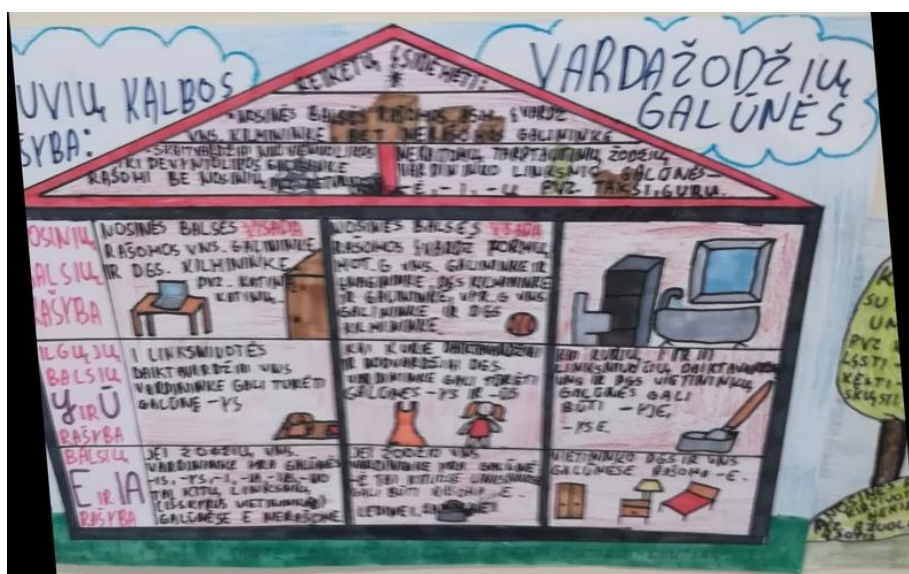 UVIŲ KALBOS
ŠYBA:
VARDAŽODŽIŲ
GALŪNĖS
REIKĖTŲ ĮSIDĖMĖTI:
NOSINĖS BALSĖS RAŠOMOS ASM. ĮVARDŽ
VNS. KILMININKE BET NERAŠOMOS GALININKE
SKAITVARDŽIAI NUO VIENUOLIKOS
IKI DEVYNIOLIKOS GALININKE
RAŠOMI BE NOSINIŲ
NEKAITOMŲ TARPTAUTINIŲ ŽODŽIŲ
VARDININKO LINKSNIO GALŪNĖS-
-Ė, -I, -U PVZ TAKSI, GURU.
NOSINIŲ
BALSIŲ
RAŠYBA
NOSINĖS BALSĖS VISADA
RAŠOMOS VNS. GALININKE
IR DGS. KILMININKE
PVZ. KATINĄ
KATINŲ.
NOSINĖS BALSĖS VISADA
RAŠOMOS ĮVARDŽ FORMŲ
MOT.G VNS. GALININKE IR
ĮNAGININKE, DGS KILMININKE
IR GALININKE, VYR.G VNS.
GALININKE IR DGS
KILMININKE.
ILGŲJŲ
BALSIŲ
Y IR Ū
RAŠYBA
I LINKSNIUOTĖS
DAIKTAVARDŽIAI VNS
VARDININKE GALI TURĖTI
GALŪNĘ -YS
KAI KURIE DAIKTAVARDŽIAI
IR BŪDVARDŽIAI DGS.
VARDININKE GALI TURĖTI
GALŪNES -YS IR -ŪS
KAI KURIŲ
LINKSNIUOČIŲ DAIKTAVARDŽ
VNS IR DGS VIETININKŲ
GALŪNĖS GALI
BŪTI -YJE,
-YSE.
BALSIŲ
E IR IA
RAŠYBA
JEI ŽODŽIŲ VNS.
VARDININKE YRA GALŪNĖS
TAI KITŲ LINKSNIŲ
(IŠSKYRUS VIETININKĄ)
GALŪNĖSE E NERAŠOME
JEI ŽODŽIO VNS
VARDININKE YRA GALŪNĖ
-Ė TAI KITUOSE LINKSNIUOSE
GALI BŪTI RAŠOMA -E.
VIETININKO DGS IR VNS
GALŪNĖSE RAŠOMA -E.
SU
PVZ